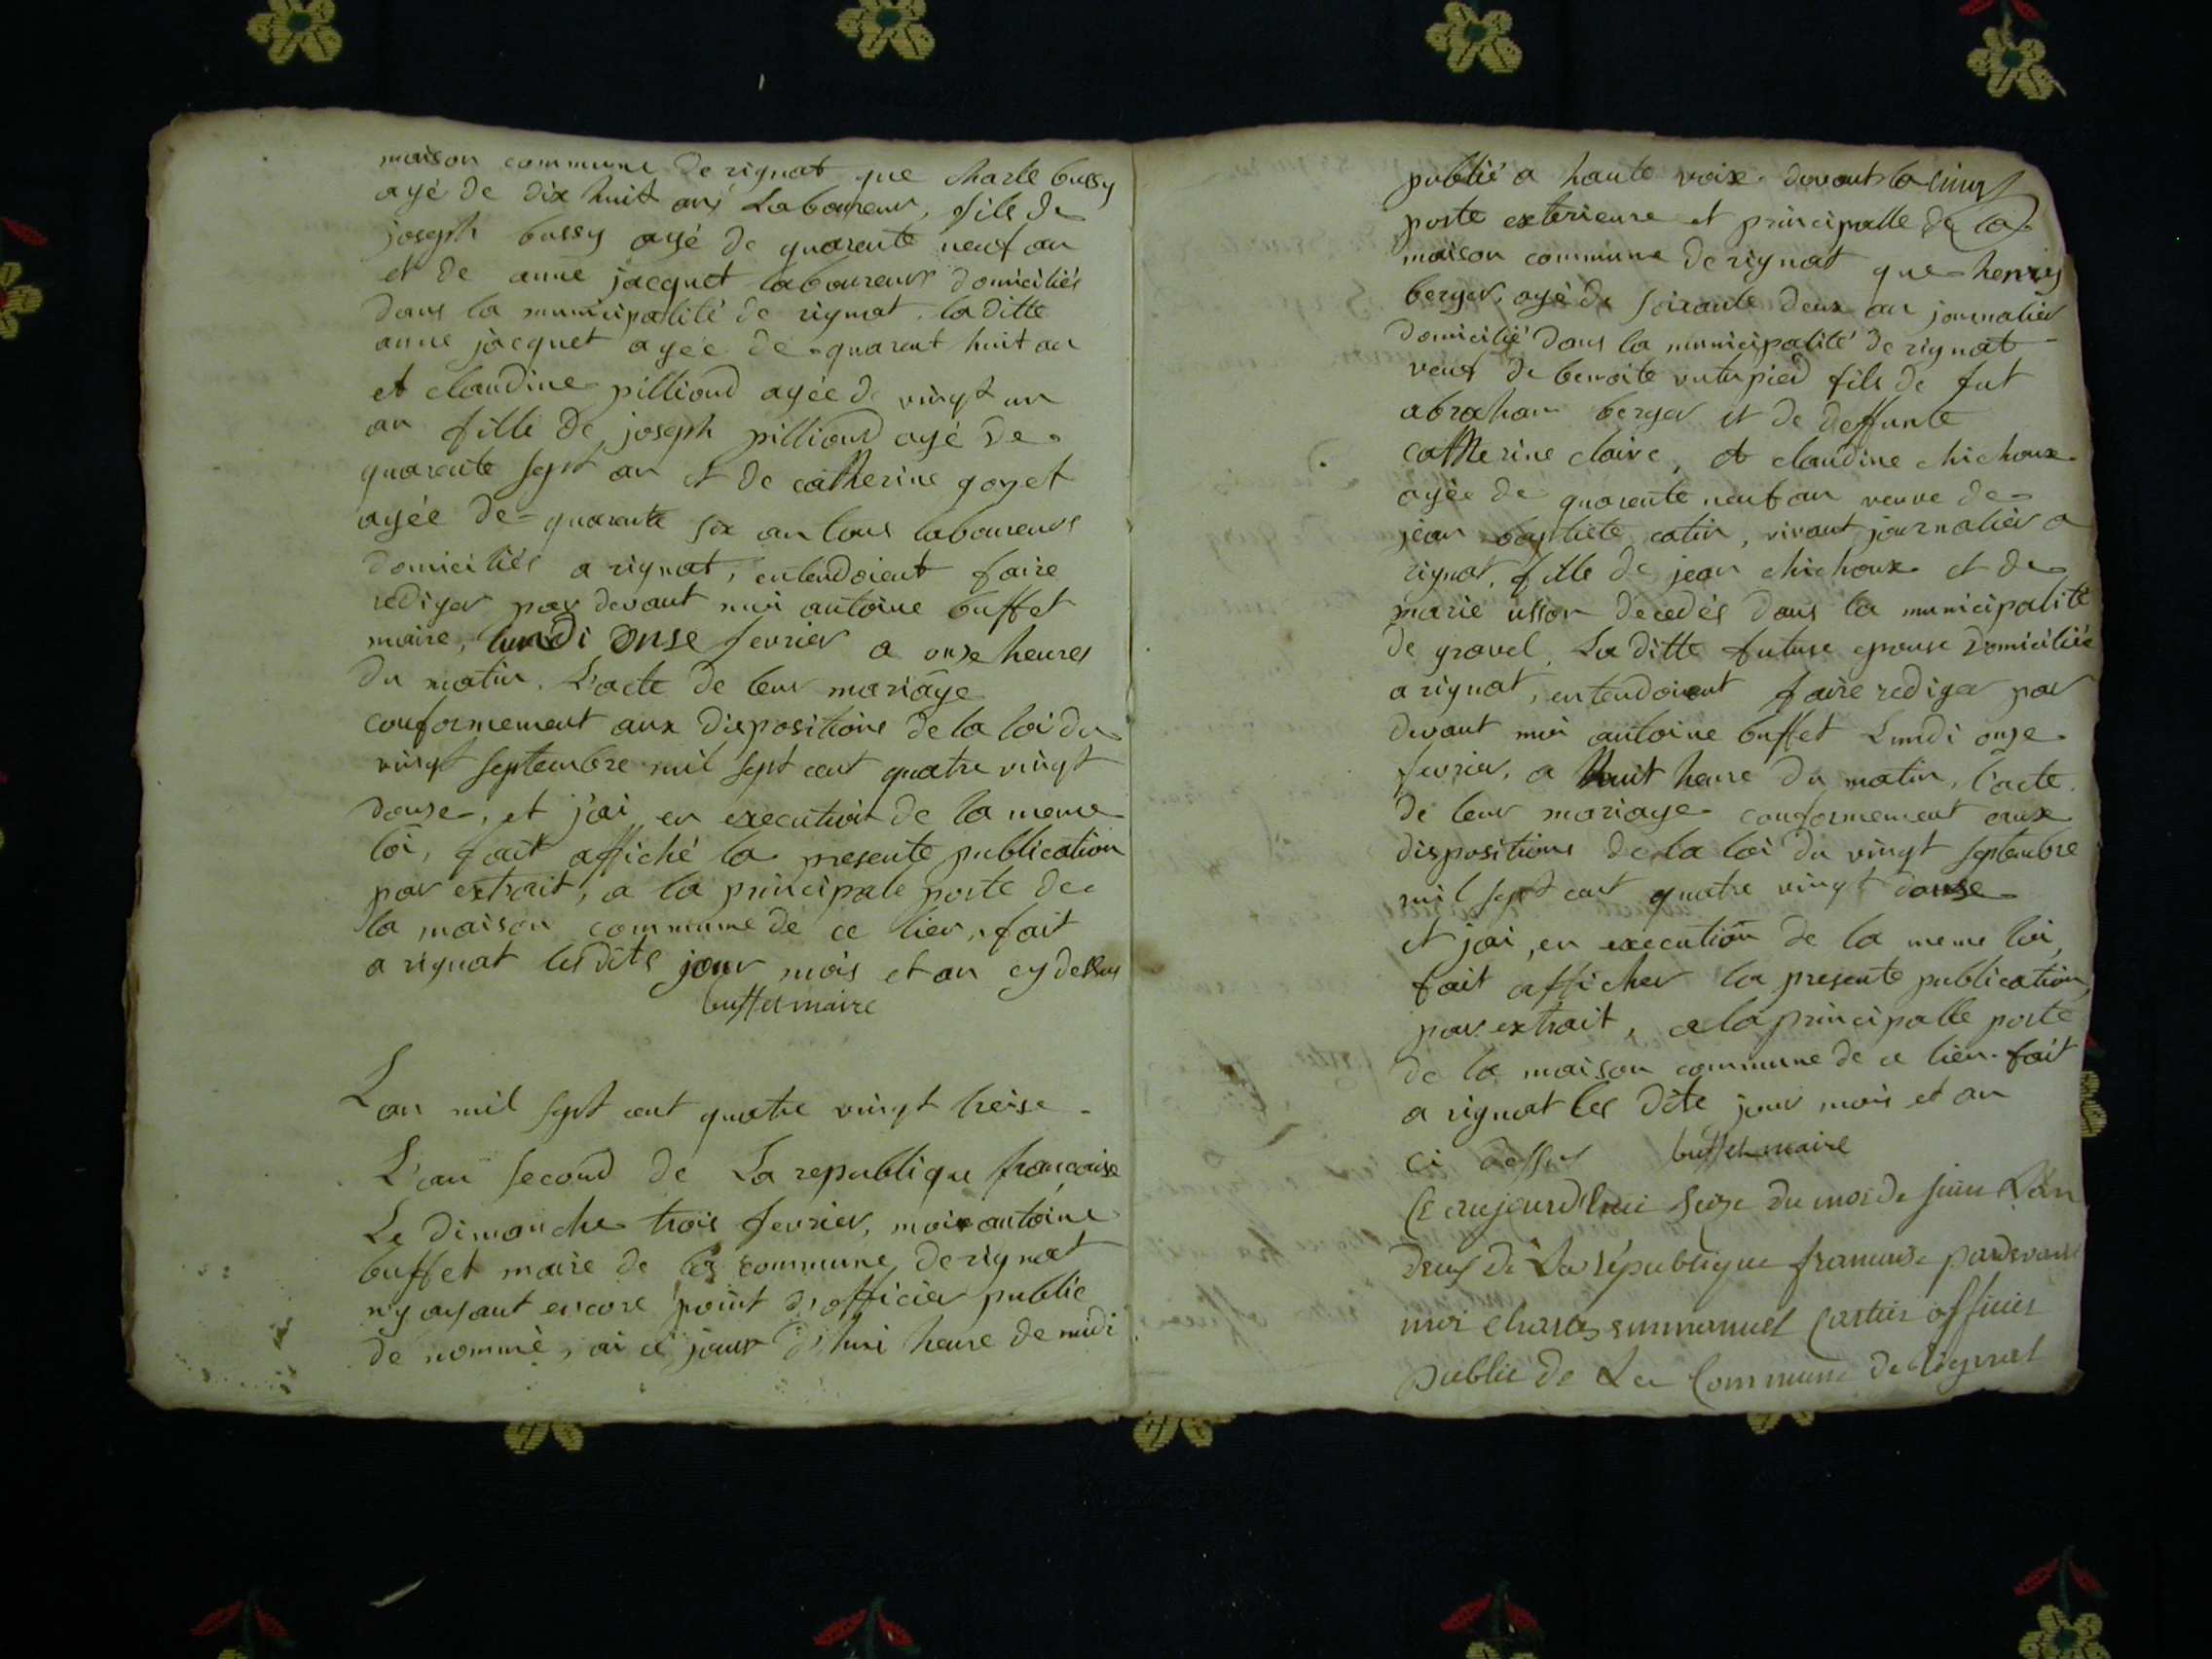 maison commune de rignat que charle bussy
agé de dix huit ans Laboureur, fils de
joseph bussy agé de quarente neuf an
et de anne jacquet laboureur domiciliés
dans la municipalité de rignat. la ditte
anne jacquet agée de quarent huit an
et claudine pilliond agée de vingt un
an fille de joseph pilliond agé de
quarente sept an et de catherine goyet
agée de quarente six an tous laboureurs
domiciliés a rignat, entendoient faire
rediger par devant moi antoine buffet
maire, lundi onse fevrier a onze heures
du matin. L'acte de leur mariage
conformement aux dispositions de la loi du
vingt septembre mil sept cent quatre vingt
douse, et j'ai en execution de la meme
loi, fait affiché la presente publication
par extrait, a la principale porte de
la maison commune de ce lieu, fait
a rignat les dits jour mois et an cy dessus
buffet maire
Lan mil sept cent quatre vingt treise
L'an second de La republique francaise
Le dimanche trois fevrier, moi antoine
buffet maire de la commune de rignat
n'y ayant encore point d'officier public
de nommé, ai ce jour d'hui heure de midi
publié a haute voix devant la
porte exterieure et principalle de la
maison commune de rignat que henry
berger, agé de soixante deux an journalier
domicilié dans la municipalité de rignat
veuf de benoite fils de fut
abraham berger et de deffunte
catherine claire, et claudine chichoux
agée de quarente neuf an veuve de
jean baptiste catin, vivant journalier a
rignat, fille de jean chichoux et de
marie usson decedés dans la municipalité
de gravel, La ditte future epouse domiciliée
a rignat, entendoient faire rediger par
devant moi antoine buffet Lundi onze
fevrier, a huit heure du matin, l'acte
de leur mariage conformement aux
dispositions de la loi du vingt septembre
mil sept cent quatre vingt douse
et jai, en execution de la meme loi,
fait afficher la presente publication,
par extrait, a la principalle porte
de la maison commune de ce lieu. fait
a rignat les dits jour mois et an
ci dessus buffet maire
Ce aujourd'huui seize du mois de juin L'an
deux de La république francaise pardevant
moi charles emmanuel Cartier officier
public de La Commune de Rignat